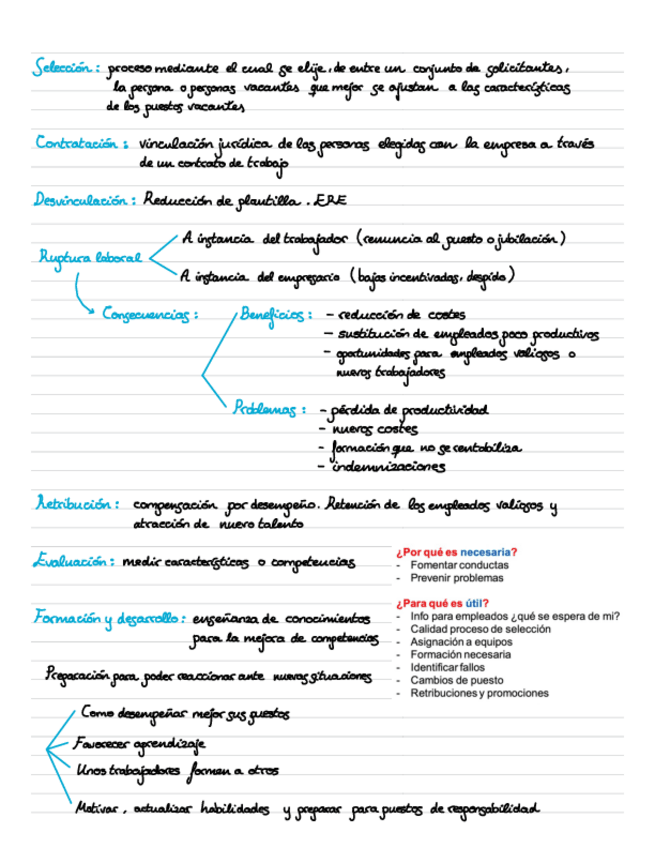 Selección: proceso mediante el cual se elije, de entre un conjunto de solicitantes,
la persona o personas vacantes que mejor se ajustan a las características
de los puestos vacantes
Contratación: vinculación jurídica de las personas elegidas con la empresa a través
de un contrato de trabajo
Desvinculación: Reducción de plantilla. ERE
A instancia del trabajador (renuncia al puesto o jubilación)
Ruptura laboral
A instancia del empresario (bajas incentivadas, despido)
Consecuencias: Beneficios: - reducción de costes
- sustitución de empleados poco productivos
- oportunidades para empleados valiosos o
nuevos trabajadores
Problemas: - pérdida de productividad
- nuevos costes
- formación que no se rentabiliza
- indemnizaciones
Retribución: compensación por desempeño. Retención de los empleados valiosos y
atracción de nuevo talento
Evaluación: medir características o competencias
¿Por qué es necesaria?
- Fomentar conductas
- Prevenir problemas
¿Para qué es útil?
- Info para empleados ¿qué se espera de mi?
- Calidad proceso de selección
- Asignación a equipos
- Formación necesaria
- Identificar fallos
- Cambios de puesto
- Retribuciones y promociones
Formación y desarrollo: enseñanza de conocimientos
para la mejora de competencias
Preparación para poder reaccionar ante nuevas situaciones
Como desempeñar mejor sus puestos
Favorecer aprendizaje
Unos trabajadores formen a otros
Motivar, actualizar habilidades y preparar para puestos de responsabilidad